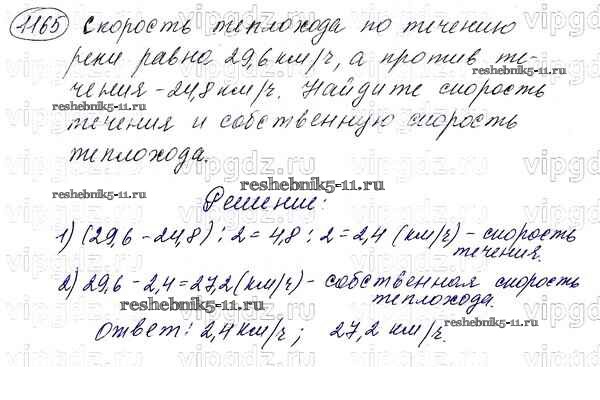 1165 Скорость теплохода по течению
реки равна 29,6 км/ч, а против те-
чения - 24,8 км/ч. Найдите скорость
reshebnik5-11.ru
течения и собственную скорость
теплохода.
reshebnik5-11.ru
reshebnik5-11.ru
Решение:
1) (29,6 - 24,8) : 2 = 4,8 : 2 = 2,4 (км/ч) - скорость
течения.
2) 29,6 - 2,4 = 27,2 (км/ч) - собственная скорость
теплохода.
reshebnik5-11.ru
Ответ: 2,4 км/ч; 27,2 км/ч.
reshebnik5-11.ru
reshebnik5-11.ru